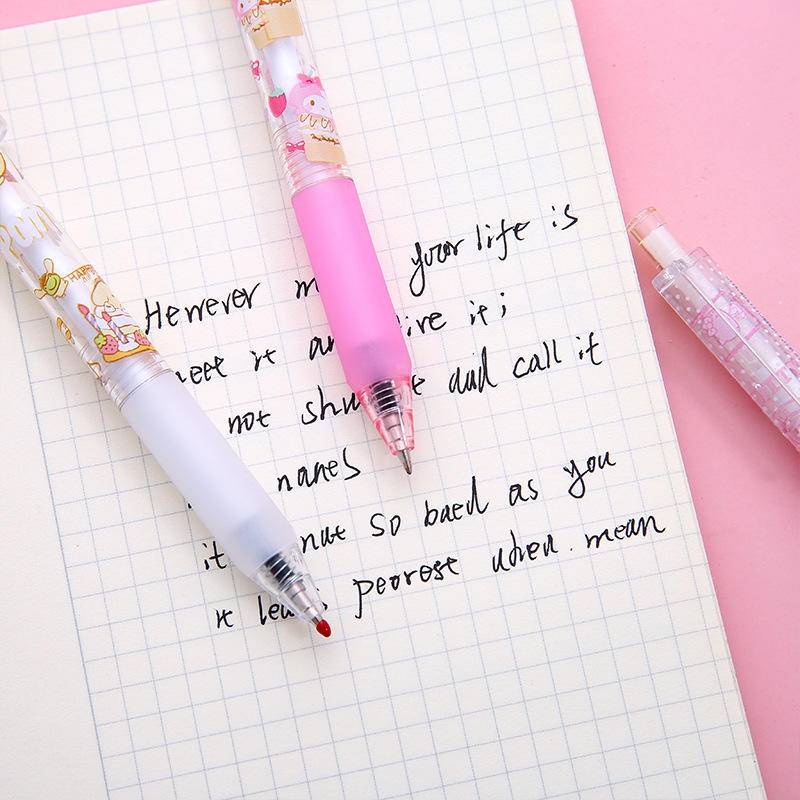 Herrever m your life is
meet it an live it;
not shu and call it
nanes
it nut so baed as you
it peorest when mean
HAPPY